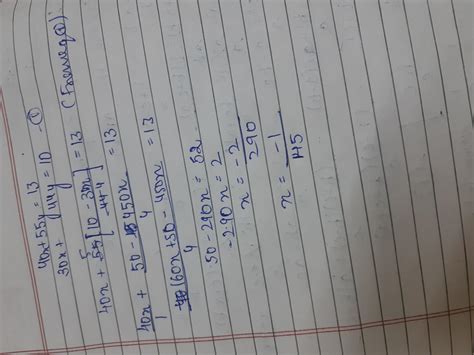 40x + 55y = 13
30x + 44y = 10 - ①
40x + 55 5 [ 10 - 30x / 44 4 ] = 13 (From eq ①)
40x + 50 - 450x / 4 = 13
40x / 1 + 50 - 450x / 4 = 13
160x + 50 - 450x / 4
50 - 290x = 52
-290x = 2
x = -2 / 290
x = -1 / 145